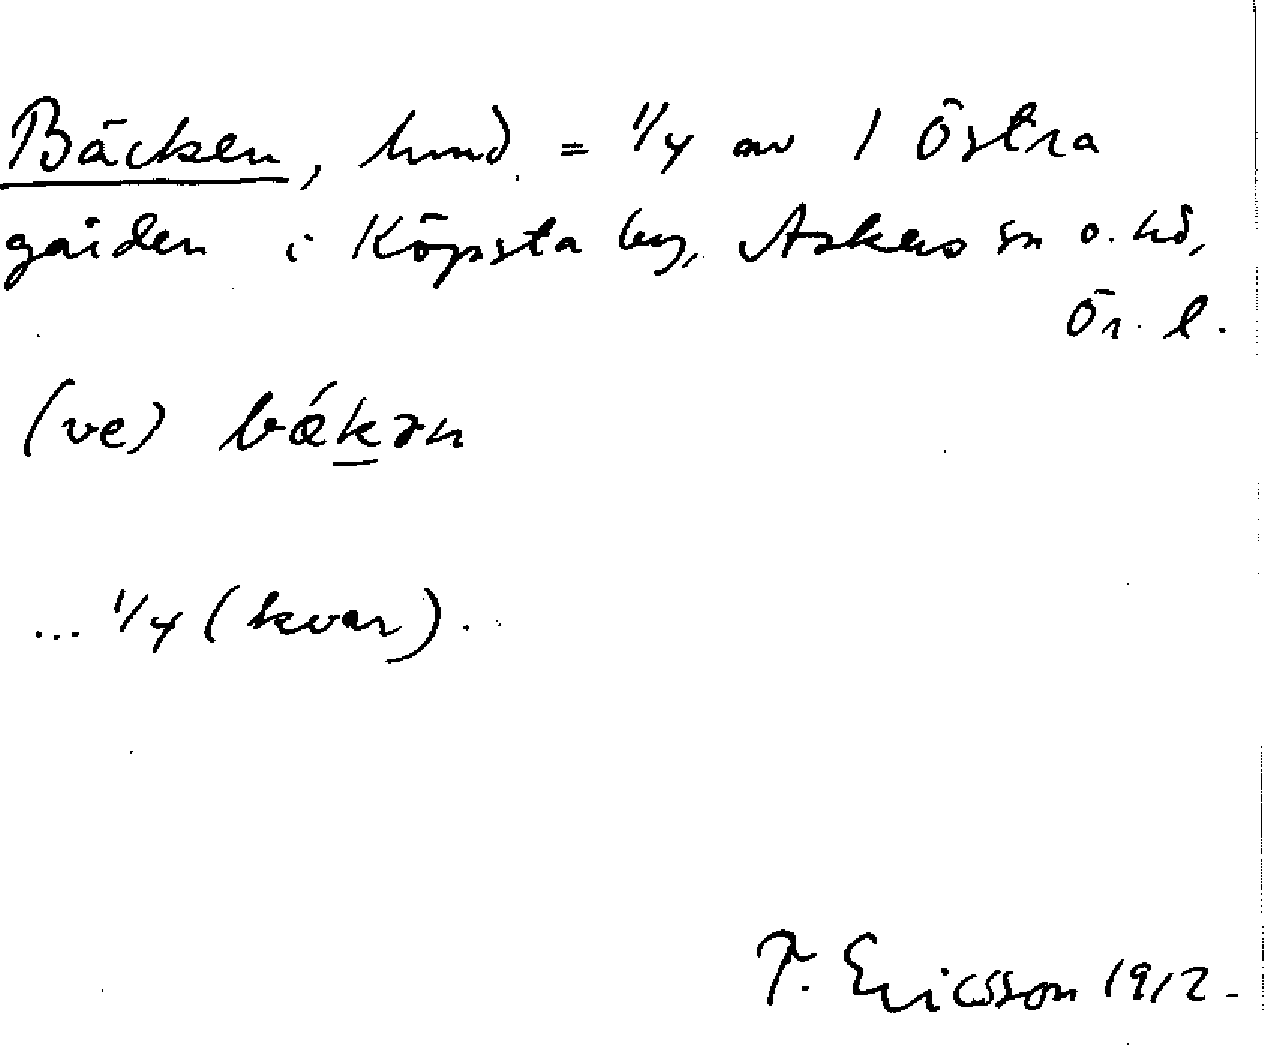 Bäcken, hmd = 1/4 av 1 Östra
gården i Köpsta by, Askers sn o. hd,
Ör. l.
(ve) bǽkən
... 1/4 (kvar).
T. Ericsson 1912.